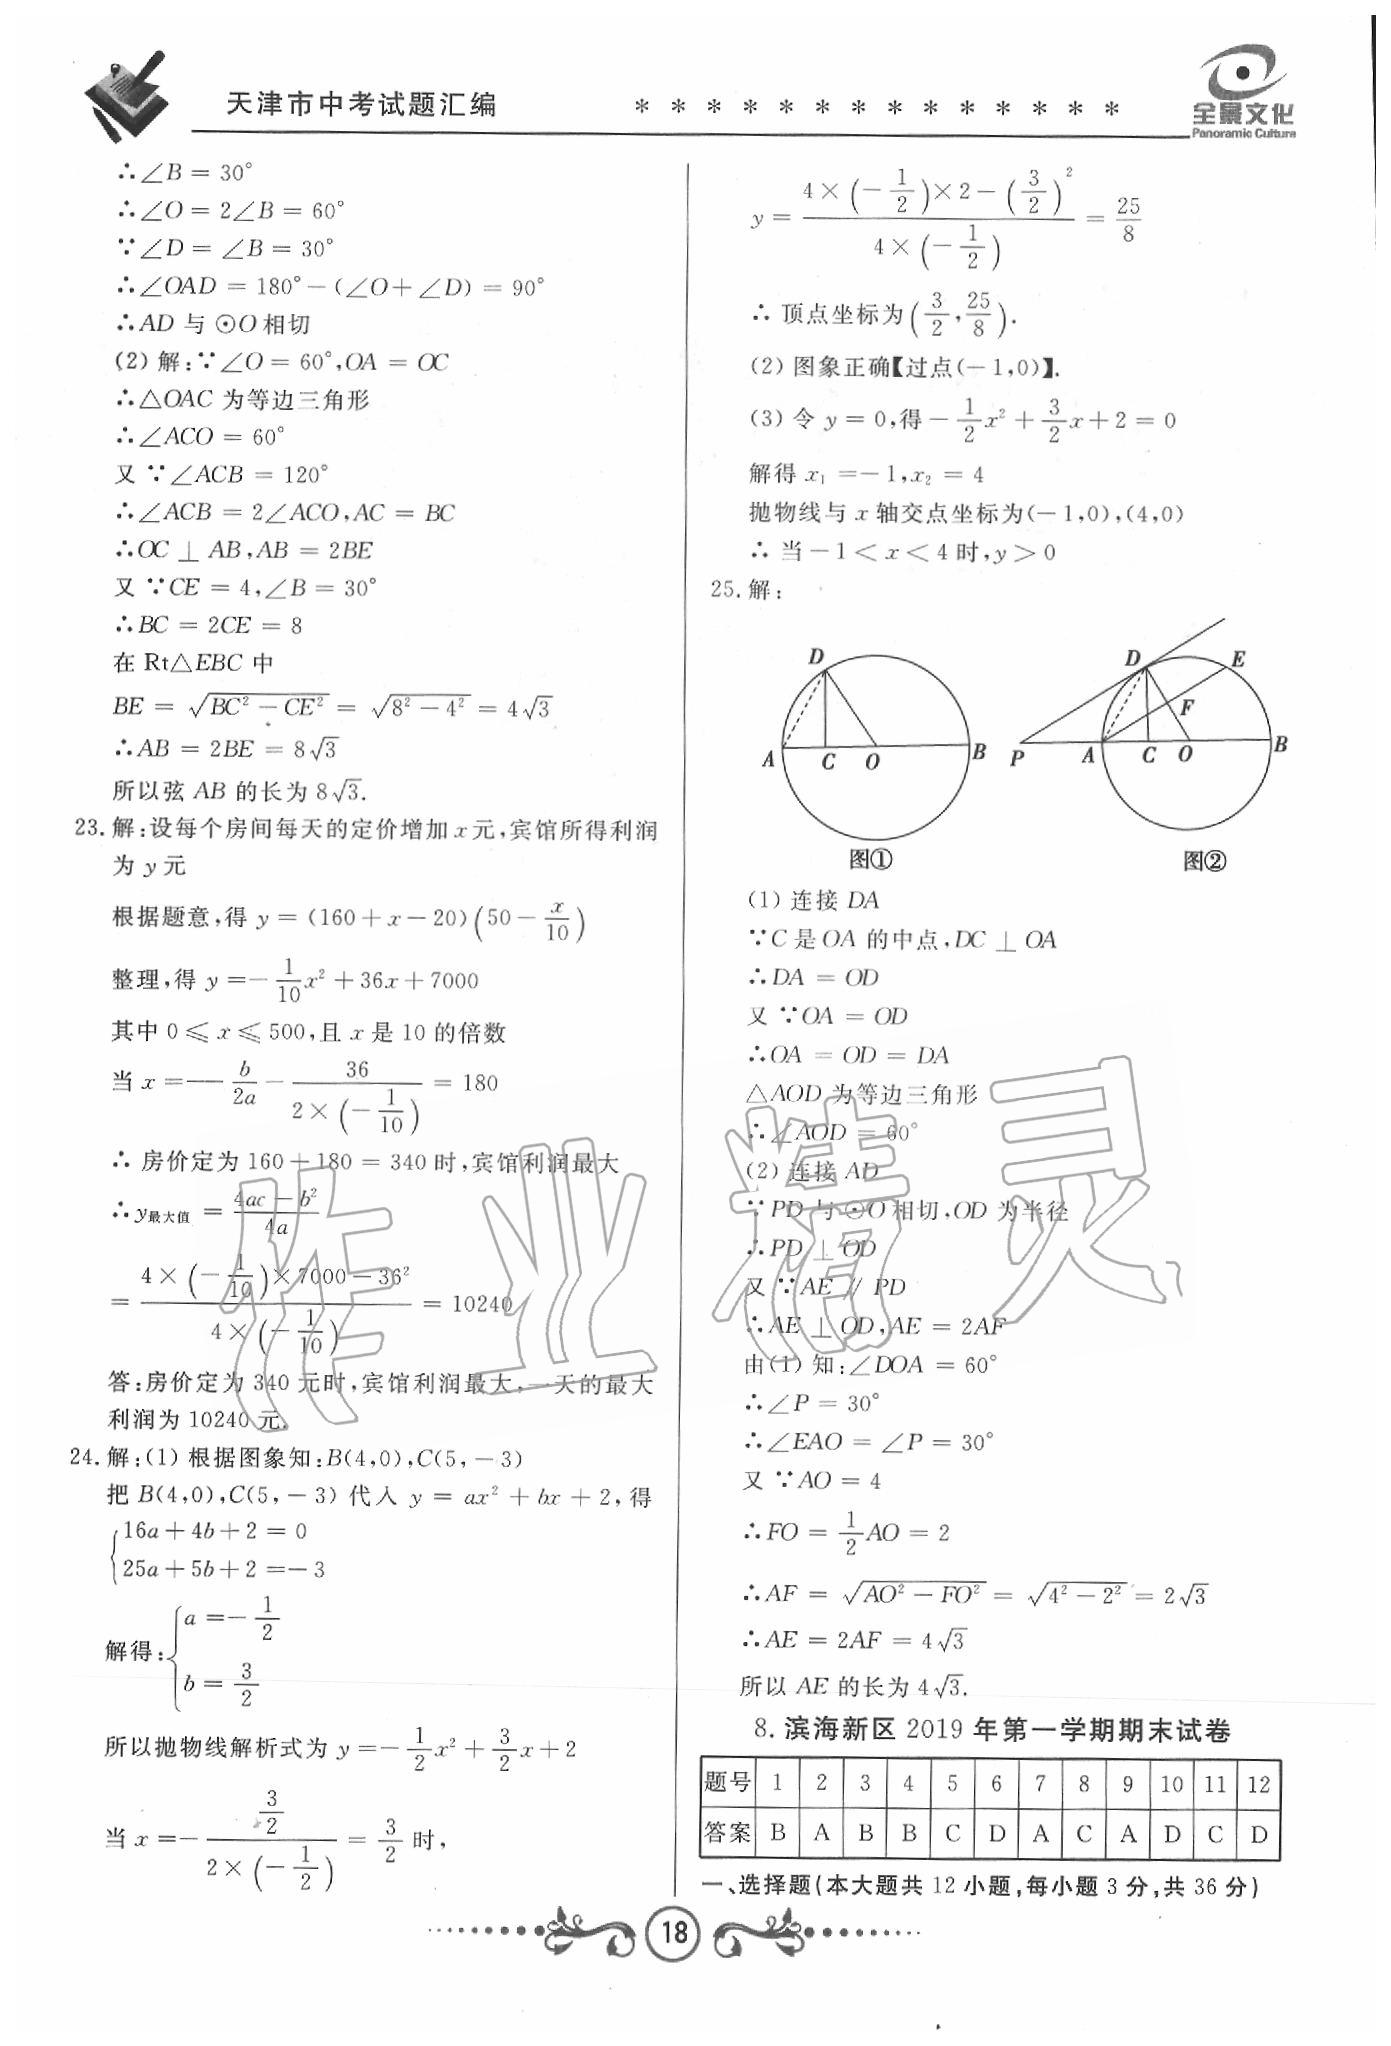 天津市中考试题汇编
* * * * * * * * * * * * * *
全景文化
Panoramic Culture
∴∠B = 30°
∴∠O = 2∠B = 60°
∵∠D = ∠B = 30°
∴∠OAD = 180° − (∠O + ∠D) = 90°
∴AD 与 ⊙O 相切
(2) 解:∵∠O = 60°,OA = OC
∴△OAC 为等边三角形
∴∠ACO = 60°
又 ∵∠ACB = 120°
∴∠ACB = 2∠ACO,AC = BC
∴OC ⊥ AB,AB = 2BE
又 ∵CE = 4,∠B = 30°
∴BC = 2CE = 8
在 Rt△EBC 中
BE = √(BC² − CE²) = √(8² − 4²) = 4√3
∴AB = 2BE = 8√3
所以弦 AB 的长为 8√3.
23. 解:设每个房间每天的定价增加 x 元,宾馆所得利润
为 y 元
根据题意,得 y = (160 + x − 20)(50 − x/10)
整理,得 y = − 1/10 x² + 36x + 7000
其中 0 ≤ x ≤ 500,且 x 是 10 的倍数
当 x = − b/2a − 36/(2 × (− 1/10)) = 180
∴ 房价定为 160 + 180 = 340 时,宾馆利润最大
∴y最大值 = (4ac − b²)/4a
= (4 × (− 1/10) × 7000 − 36²)/(4 × (− 1/10)) = 10240
答:房价定为 340 元时,宾馆利润最大,一天的最大
利润为 10240 元.
24. 解:(1) 根据图象知:B(4,0),C(5, − 3)
把 B(4,0),C(5, − 3) 代入 y = ax² + bx + 2,得
{16a + 4b + 2 = 0
25a + 5b + 2 = − 3
解得:{a = − 1/2
b = 3/2
所以抛物线解析式为 y = − 1/2 x² + 3/2 x + 2
当 x = − (3/2)/(2 × (− 1/2)) = 3/2 时,
y = (4 × (− 1/2) × 2 − (3/2)²)/(4 × (− 1/2)) = 25/8
∴ 顶点坐标为(3/2, 25/8).
(2) 图象正确【过点(− 1,0)】.
(3) 令 y = 0,得 − 1/2 x² + 3/2 x + 2 = 0
解得 x₁ = − 1,x₂ = 4
抛物线与 x 轴交点坐标为(− 1,0),(4,0)
∴ 当 − 1 < x < 4 时,y > 0
25. 解:
D
A C O B
图①
D E
F
P A C O B
图②
(1) 连接 DA
∵C 是 OA 的中点,DC ⊥ OA
∴DA = OD
又 ∵OA = OD
∴OA = OD = DA
△AOD 为等边三角形
∴∠AOD = 60°
(2) 连接 AD
∵PD 与 ⊙O 相切,OD 为半径
∴PD ⊥ OD
又 ∵AE // PD
∴AE ⊥ OD,AE = 2AF
由(1) 知:∠DOA = 60°
∴∠P = 30°
∴∠EAO = ∠P = 30°
又 ∵AO = 4
∴FO = 1/2 AO = 2
∴AF = √(AO² − FO²) = √(4² − 2²) = 2√3
∴AE = 2AF = 4√3
所以 AE 的长为 4√3.
8. 滨海新区 2019 年第一学期期末试卷
题号 1 2 3 4 5 6 7 8 9 10 11 12
答案 B A B B C D A C A D C D
一、选择题(本大题共 12 小题,每小题 3 分,共 36 分)
18
作业精灵